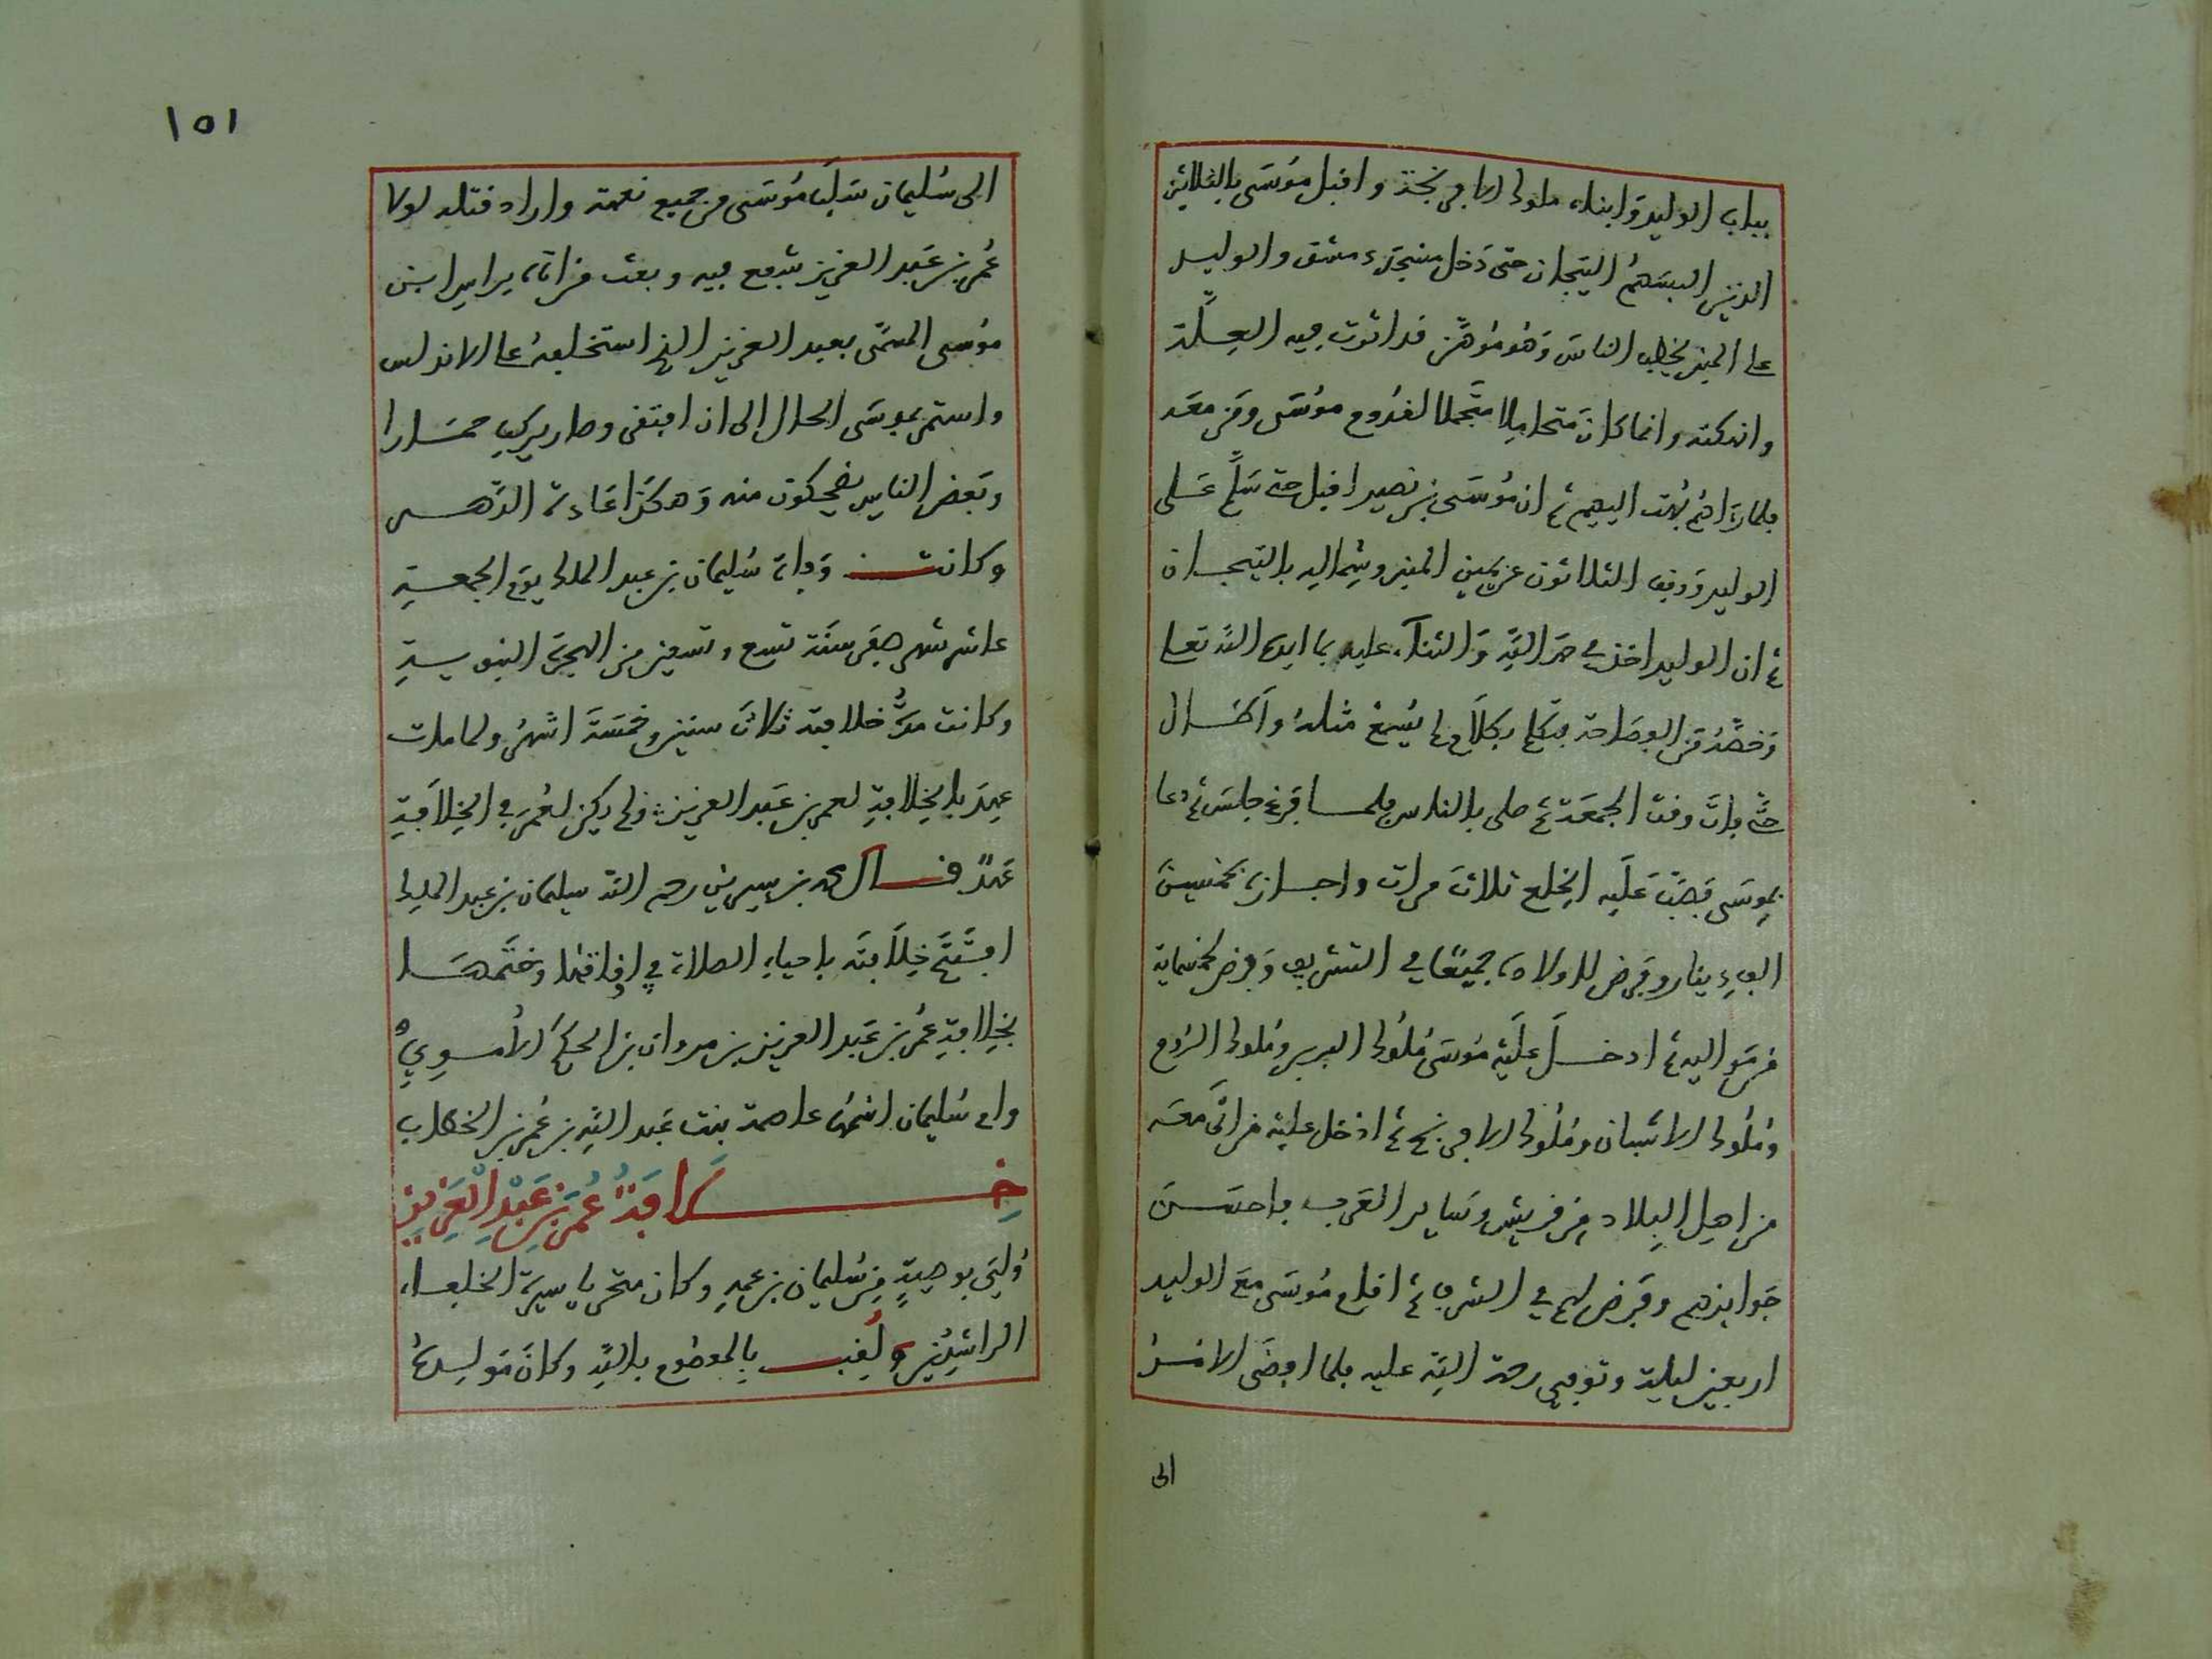 بباب الوليد وابناء ملوك الافرنجة واقبل موسى بالثلاثين
الذين البسهم التيجان حتى دخل مسجد دمشق والوليد
على المنبر يخطب الناس وهو موهن قد اثرت فيه العلة
وانهكته وانما كان متحاملا متجملا لقدوم موسى ومن معه
فلما رءاهم بهت اليهم ثم ان موسى بن نصير اقبل حتى سلم على
الوليد ووقف الثلاثون عن يمين المنبر وشماله بالتيجان
ثم ان الوليد اخذ في حمد الله والثناء عليه بما ايده الله تعلى
وخصه من الفصاحة فتكلم بكلام لم يسمع مثله واطال
حتى فات وقت الجمعة ثم صلى بالناس فلما فرغ جلس ثم دعا
بموسى فصب عليه الخلع ثلاث مرات واجازه بخمسين
الف دينار وفرض لاولاده جميعا في التشريف وفرض لخمسماية
من مواليه ثم ادخل عليه موسى ملوك البربر وملوك الروم
وملوك الاشبان وملوك الافرنج ثم ادخل عليه من اتى معه
من اهل البلاد من قريش وساير العرب فاحسن
جوايزهم وفرض لهم في الشرف ثم اقام موسى مع الوليد
اربعين ليلة وتوفي رحمة الله عليه فلما افضى الامر
الى
١٥١
الى سليمان سلب موسى من جميع نعمة واراد قتله لولا
عمر بن عبد العزيز شفع فيه وبعث من اتاه براس ابن
موسى المسمى بعبد العزيز الذي استخلفه على الاندلس
واستمر بموسى الحال الى ان افتقى وصار يركب حمارا
وبعض الناس يضحكون منه وهكذا عادة الدهر
وكانت وفاة سليمان بن عبد الملك يوم الجمعة
عاشر شهر صفر سنة تسع وتسعين من الهجرة النبوية
وكانت مدة خلافته ثلاث سنين وخمسة اشهر ولما مات
عهد بالخلافة لعمر بن عبد العزيز ولم يكن لعمر في الخلافة
عهد قال محمد بن سيرين رحم الله سليمان بن عبد الملك
افتتح خلافته باحياء الصلاة في اوقاتها وختمها
بخلافة عمر بن عبد العزيز بن مروان بن الحكم الاموي
وام سليمان اسمها عاصمة بنت عبد الله بن عمر بن الخطاب
خلافة عمر بن عبد العزيز
ولي بوصية من سليمان بن عمه وكان متحريا سيرة الخلفاء
الراشدين ولقب بالمعصوم بالله وكان مولده